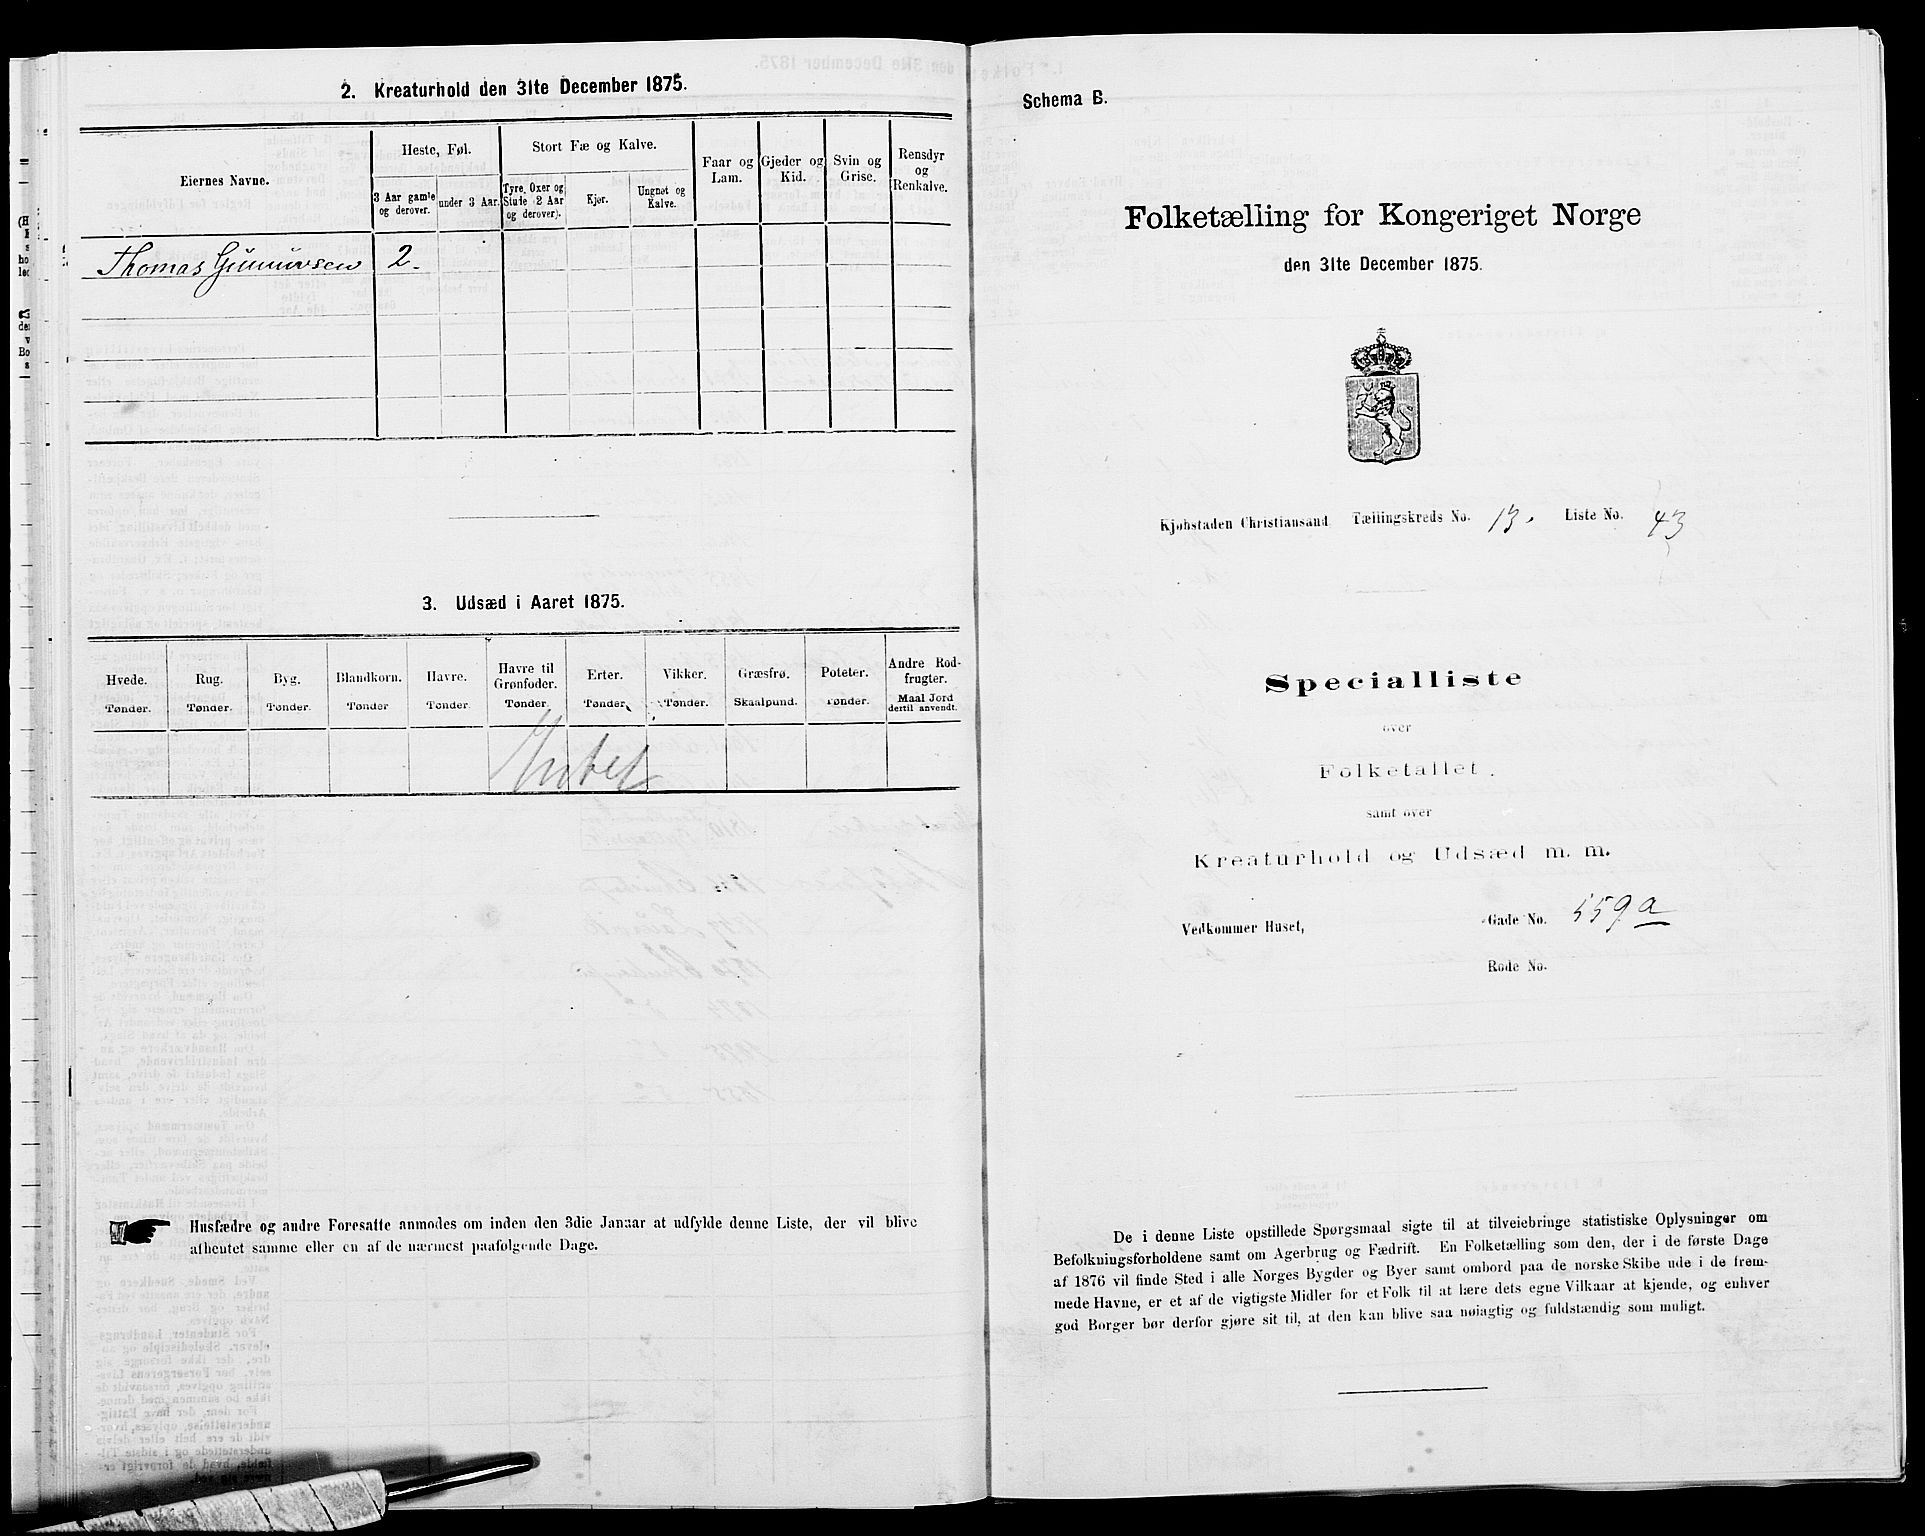 2. Kreaturhold den 31te December 1875.
Eiernes Navne.
Heste, Føl.
3 Aar gamle og derover.
under 3 Aar.
Stort Fæ og Kalve.
Tyre, Oxer og Stude (2 Aar og derover).
Kjør.
Ungnøt og Kalve.
Faar og Lam.
Gjeder og Kid.
Svin og Grise.
Rensdyr og Renkalve.
Thomas Gunnuvsen 2.
3. Udsæd i Aaret 1875.
Hvede. Tønder.
Rug. Tønder.
Byg. Tønder.
Blandkorn. Tønder
Havre. Tønder.
Havre til Grønfoder. Tønder.
Erter. Tønder.
Vikker. Tønder.
Græsfrø. Skaalpund.
Poteter. Tønder.
Andre Rodfrugter. Maal Jord dertil anvendt.
Husfædre og andre Foresatte anmodes om inden den 3die Januar at udfylde denne Liste, der vil blive
afhentet samme eller en af de nærmest paafølgende Dage.
Schema B.
Folketælling for Kongeriget Norge
den 31te December 1875.
Kjøbstaden Christiansand Tællingskreds No. 13. Liste No. 43
Specialliste
over
Folketallet.
samt over
Kreaturhold og Udsæd m. m.
Vedkommer Huset, Gade No. 559a
Rode No.
De i denne Liste opstillede Spørgsmaal sigte til at tilveiebringe statistiske Oplysninger om
Befolkningsforholdene samt om Agerbrug og Fædrift. En Folketælling som den, der i de første Dage
af 1876 vil finde Sted i alle Norges Bygder og Byer samt ombord paa de norske Skibe ude i de frem-
mede Havne, er et af de vigtigste Midler for et Folk til at lære dets egne Vilkaar at kjende, og enhver
god Borger bør derfor gjøre sit til, at den kan blive saa nøiagtig og fuldstændig som muligt.